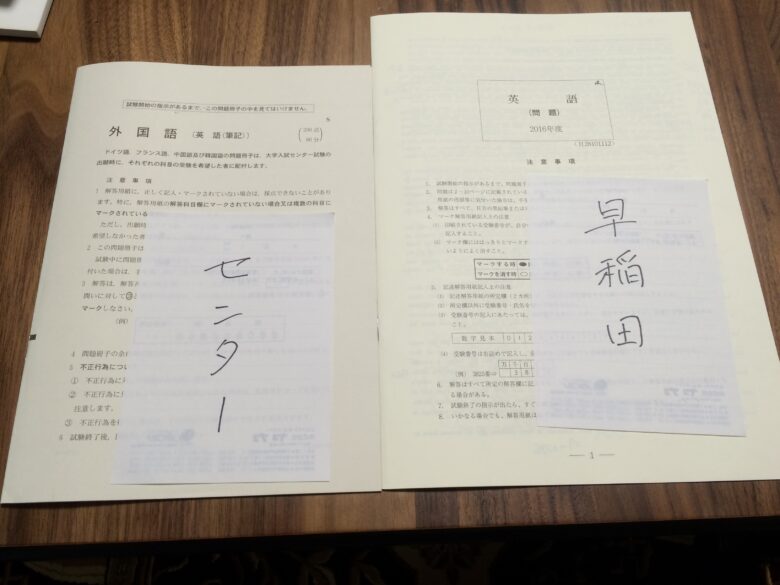 試験開始の指示があるまで、この問題冊子の中を見てはいけません。
外国語〔英語(筆記)〕
200点
80分
ドイツ語、フランス語、中国語及び韓国語の問題冊子は、大学入試センター試験の
出願時に、それぞれの科目の受験を希望した者に配付します。
注意事項
1 解答用紙に、正しく記入・マークされていない場合は、採点できないことがあり
ます。特に、解答用紙の解答科目欄にマークされていない場合又は複数の科目に
マークされている
ただし、出願時
希望しなかった者
2 この問題冊子は
試験中に問題冊
付いた場合は、
3 解答は、解答用
問いに対して③と
マークしなさい。
(例)
4 問題冊子の余白
5 不正行為につい
① 不正行為に対
② 不正行為に
注意します。
③ 不正行為を
6 試験終了後、
センター
英語
(問題)
2016年度
(H28101112)
注意事項
1. 試験開始の指示があるまで、問題冊子
2. 問題は2〜10ページに記載されてい
3. 解答はすべて、
4. マーク解答用紙記入上の注意
(1) 印刷されている受験番号が、自分
記入すること。
(2) マーク欄にははっきりとマーク
いようによく消すこと。
マークする時
マークを消す時
5. 記述解答用紙記入上の注意
(1) 記述解答用紙の所定欄(2カ所
(2) 所定欄以外に受験番号・氏名を
(3) 受験番号の記入にあたっては、
こと。
数字見本 0 1 2
(4) 受験番号は右詰めで記入し、
万 千
(例) 3825番⇨ 3 8
6. 解答はすべて所定の解答欄に記
る場合がある。
7. 試験終了の指示が出たら、すぐ
8. いかなる場合でも、解答用紙は
早稲田
1